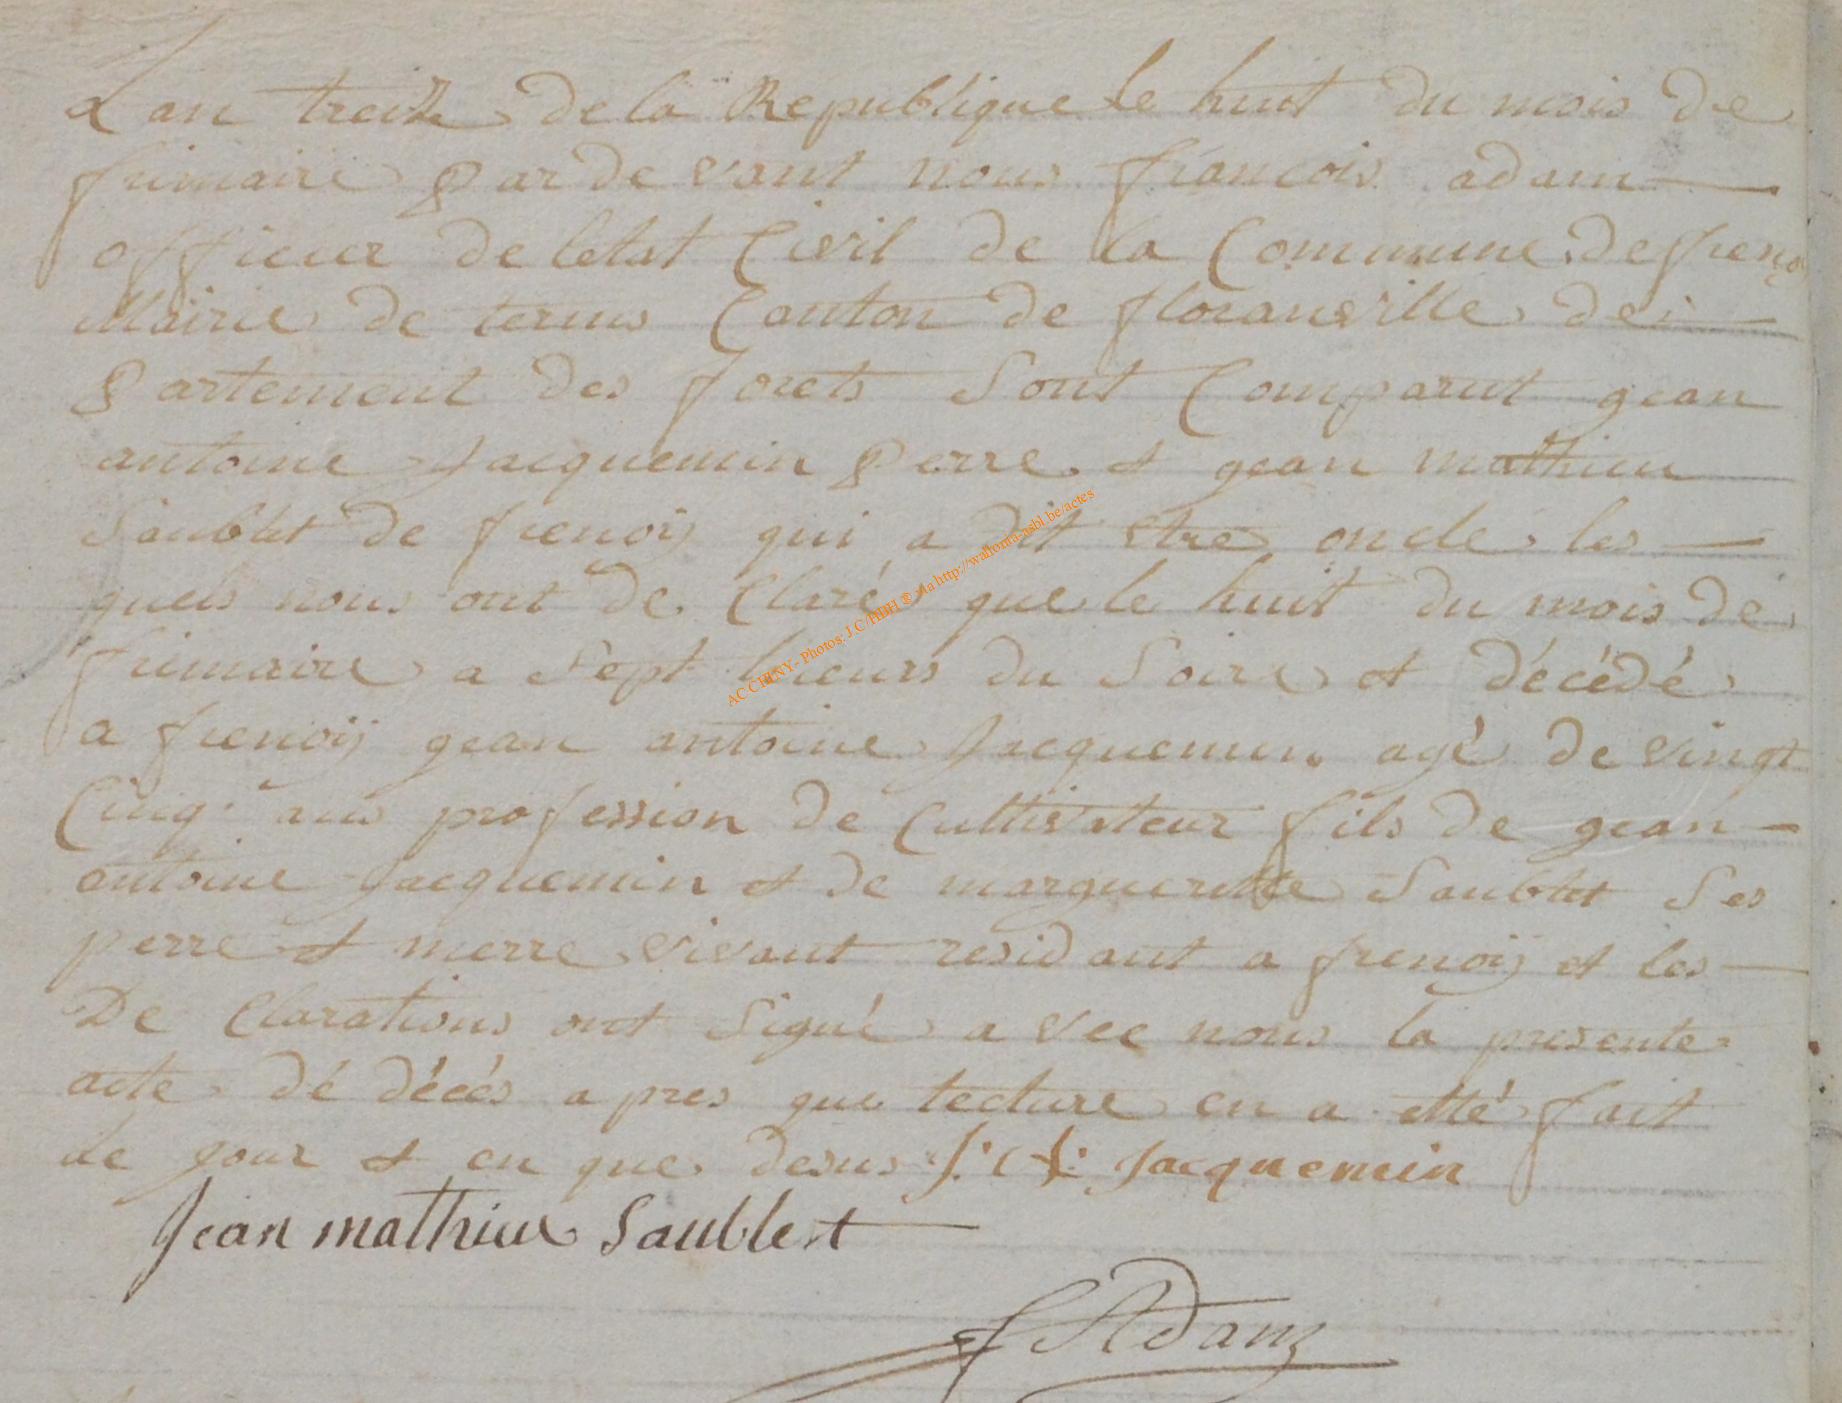 Lan treize de la Republique le huit du mois de
frimaire par de vant nous francois adam
officier de letat Civil de la Commune de frenoy
Mairie de termes Canton de floranville dé
partement des forets Sont Comparut gean
antoine Jacquemin perre et gean mathieu
Saublet de frenoij qui a dit etre oncle les
quels nous ont de Claré que le huit du mois de
frimaire a Sept heures du Soire et décédé
a frenoij gean antoine Jacquemin agé de vingt
Cinq ans profession de Cultivateur fils de gean
antoine Jacquemin et de margueritte Saublet Ses
perre et merre vivant residant a frenoij et les
De Clarations ont Signé a vec nous la presente
acte dé décés a pres que lecture en a etté fait
Le jour et en que desus J: A: Jacquemin
Jean mathieu Saublet
f Adam
AC CHINY - Photos: J.C/HDH © via http://wallonia-asbl.be/actes